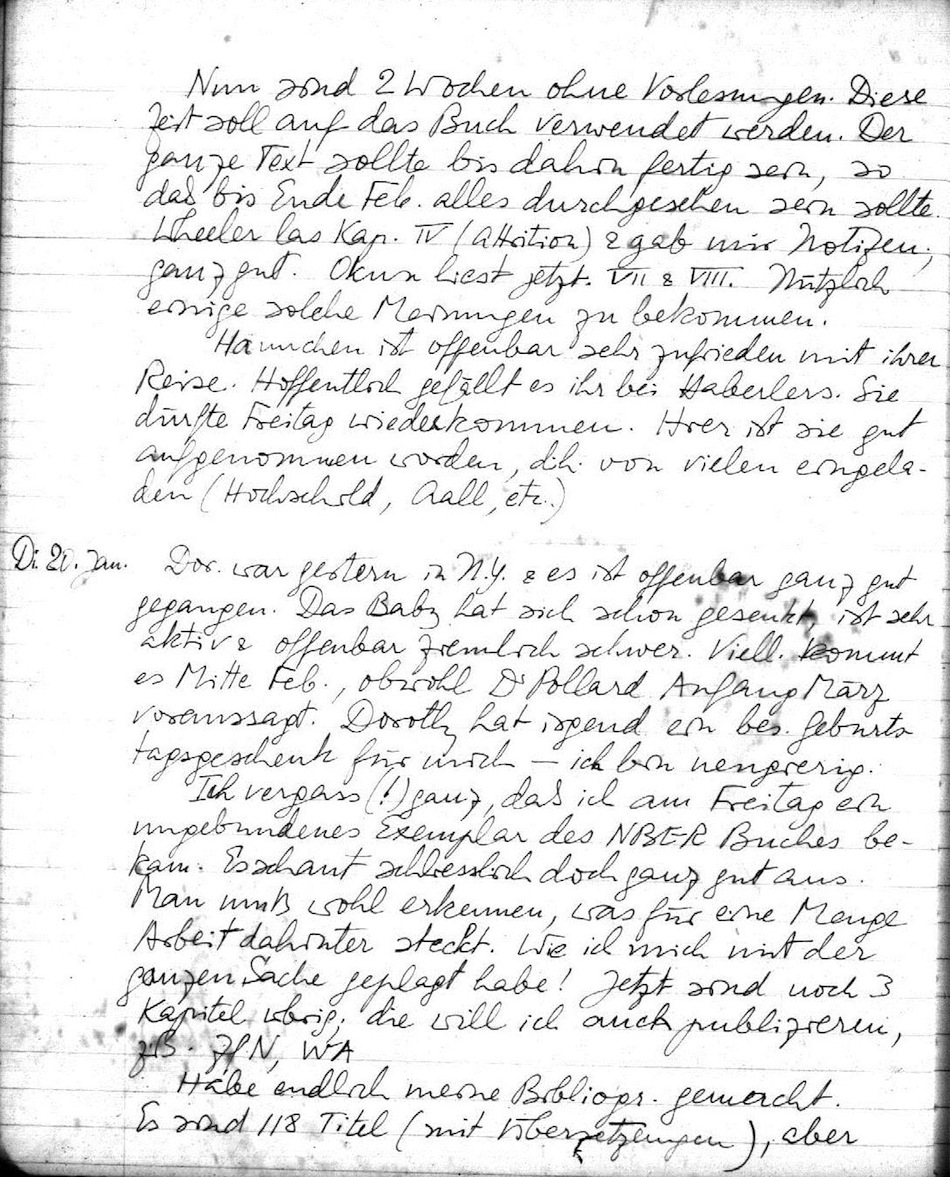 Nun sind 2 Wochen ohne Vorlesungen. Diese
Zeit soll auf das Buch verwendet werden. Der
ganze Text sollte bis dahin fertig sein, so
daß bis Ende Feb. alles durchgesehen sein sollte.
Wheeler las Kap. IV (attrition) & gab mir Notizen;
ganz gut. Okun liest jetzt VII & VIII. Nützlich
einige solche Meinungen zu bekommen.
Hannchen ist offenbar sehr zufrieden mit ihrer
Reise. Hoffentlich gefällt es ihr bei Haberlers. Sie
dürfte Freitag wiederkommen. Hier ist sie gut
aufgenommen worden, d.h. von vielen eingela-
den (Hochschild, Aall, etc.)
Di. 20. Jan. Dor. war gestern in N.Y. & es ist offenbar ganz gut
gegangen. Das Baby hat sich schon gesenkt, ist sehr
aktiv & offenbar ziemlich schwer. Viell. kommt
es Mitte Feb., obwohl Dr Pollard Anfang März
voraussagt. Dorothy hat irgend ein bes. Geburts
tagsgeschenk für mich – ich bin neugierig.
Ich vergass (!) ganz, daß ich am Freitag ein
ungebundenes Exemplar des NBER Buches be-
kam. Es schaut schliesslich doch ganz gut aus.
Man muß wohl erkennen, was für eine Menge
Arbeit dahinter steckt. Wie ich mich mit der
ganzen Sache geplagt habe! Jetzt sind noch 3
Kapitel übrig; die will ich auch publizieren,
zB. ZfN, WA
Habe endlich meine Bibliogr. gemacht.
Es sind 118 Titel (mit Übersetzungen), aber